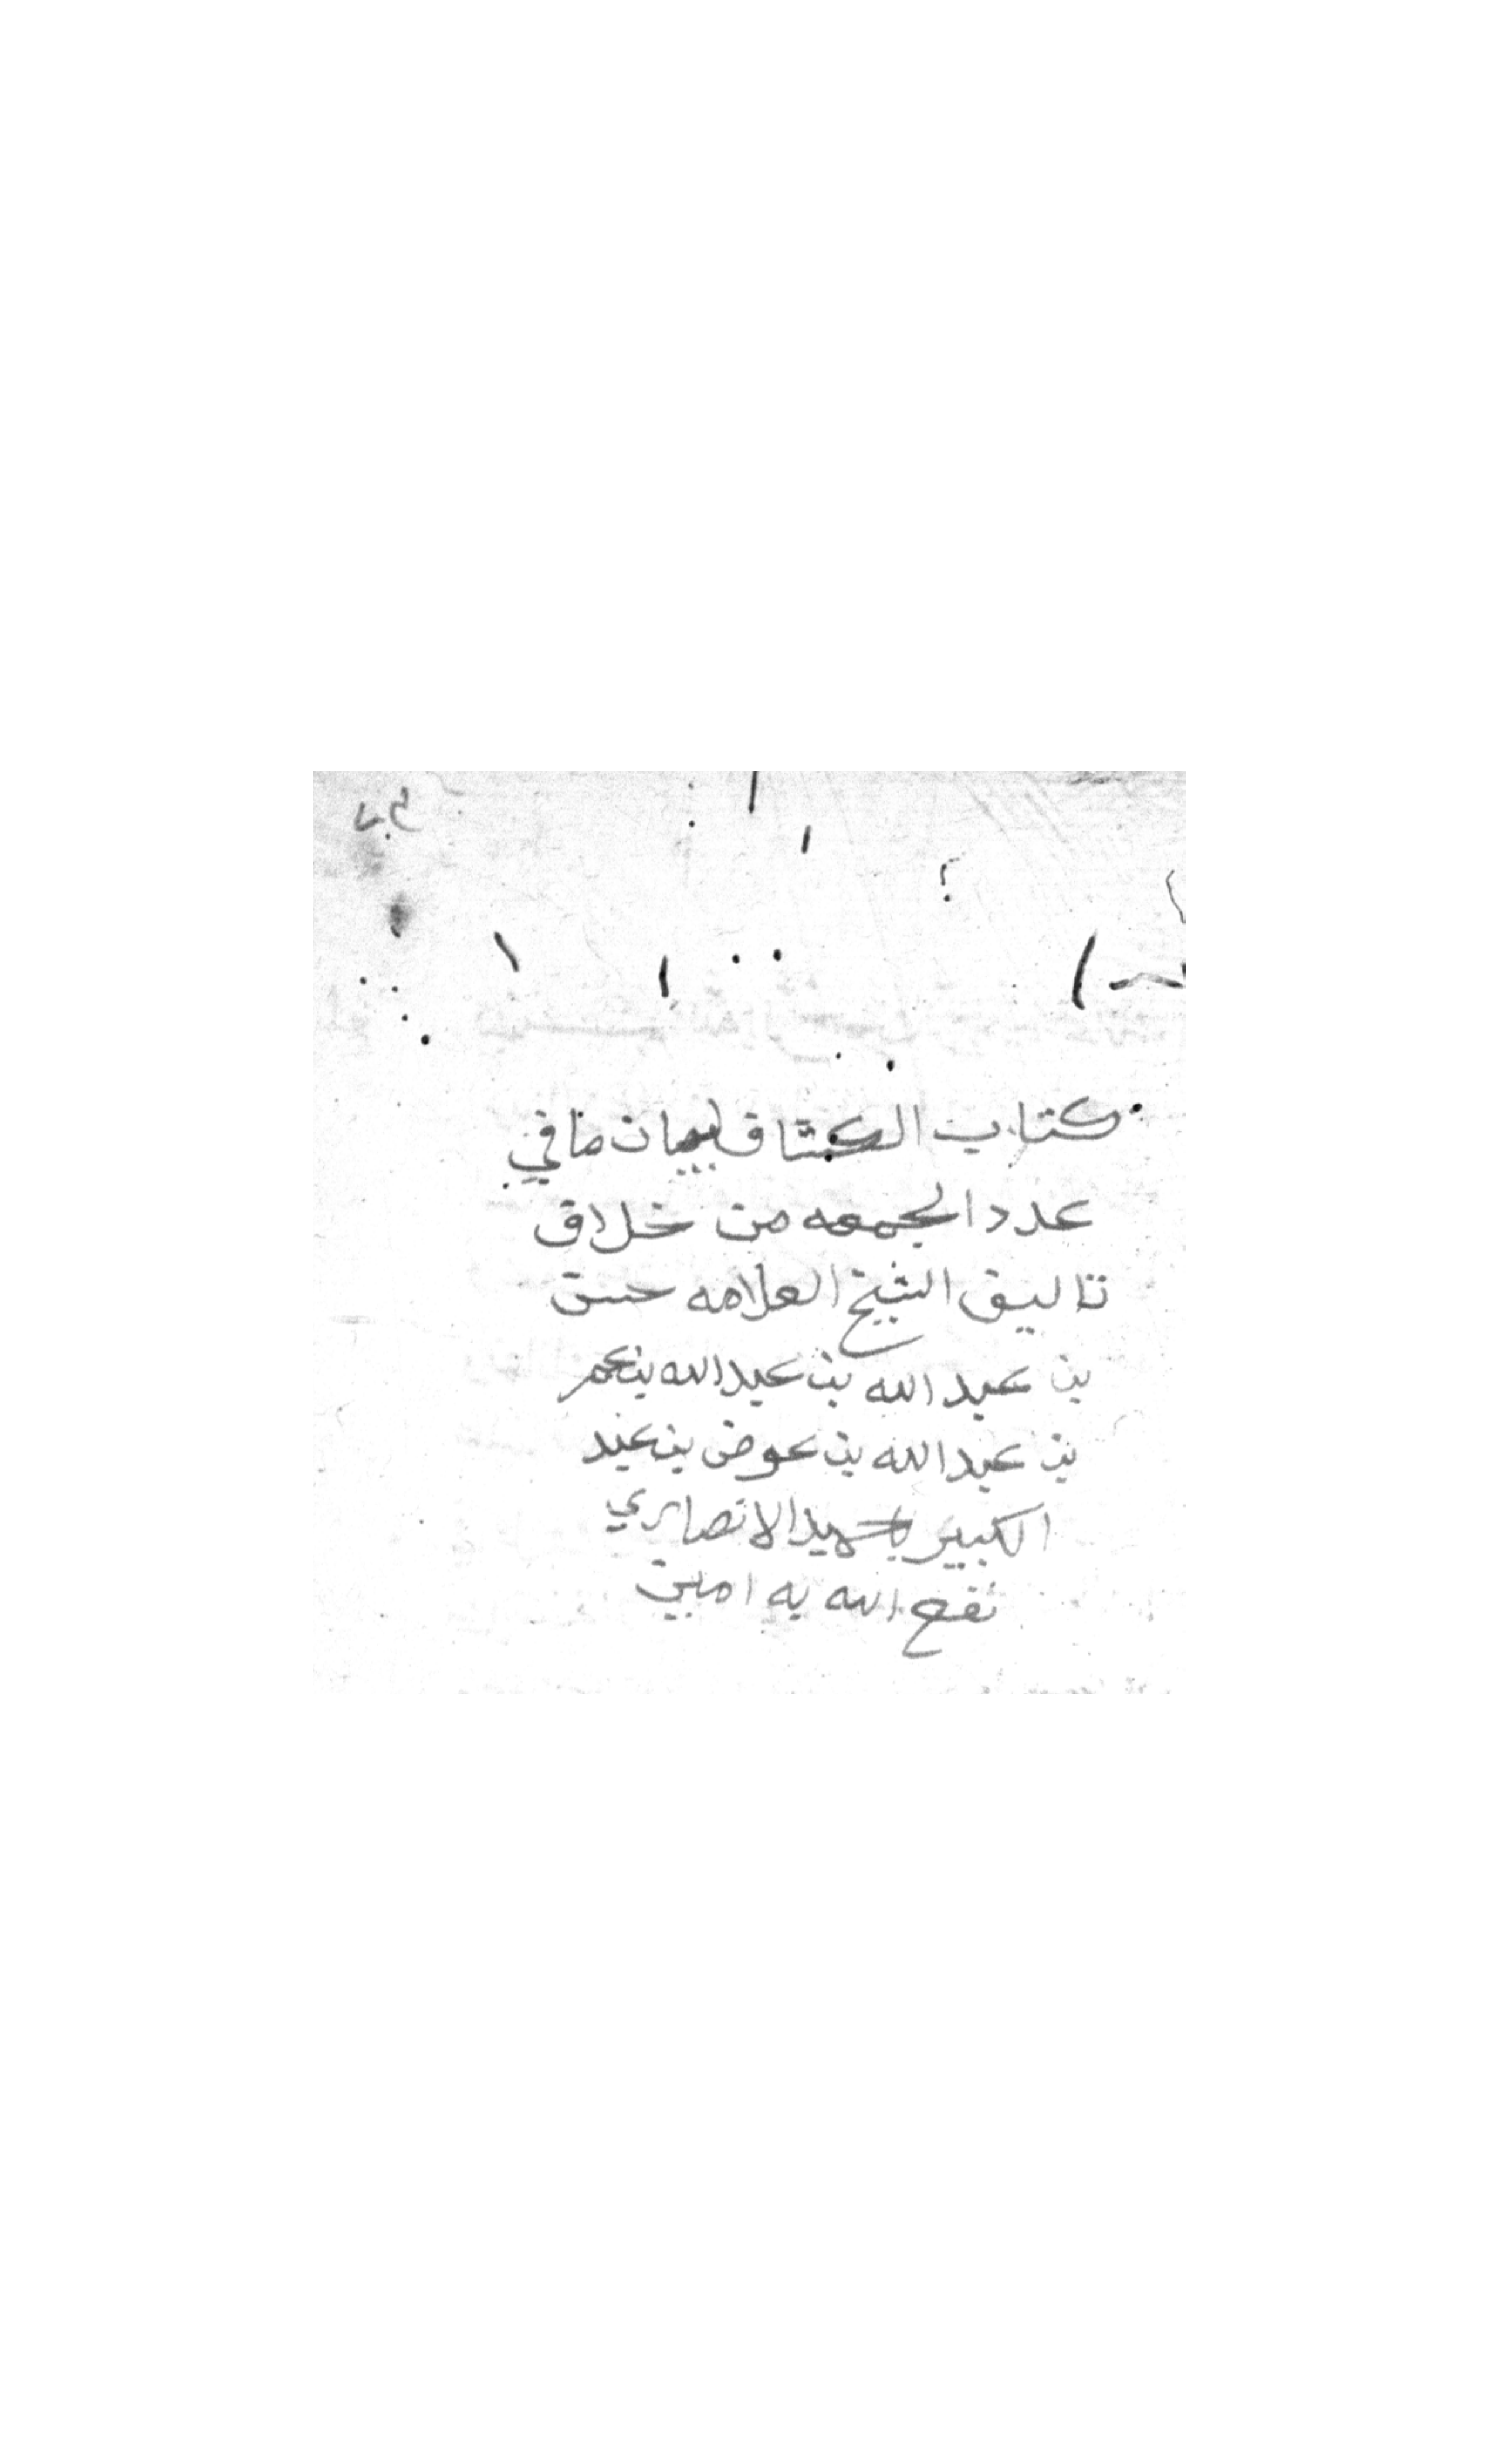 كتاب الكشاف لبيان ما في
عدد الجمعه من خلاف
تاليف الشيخ العلامه حسن
بن عبد الله بن عبد الله بن عمر
بن عبد الله بن عوض بن عبد
الكبير باحميد الانصاري
نفع الله به امين